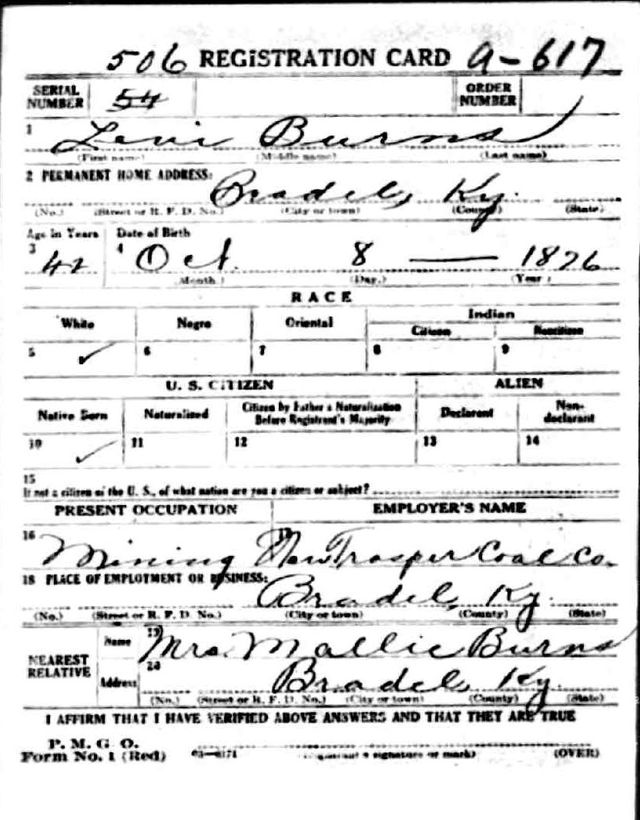 506 REGISTRATION CARD A-617
SERIAL NUMBER 54 ORDER NUMBER
1 Levi Burns
(First name) (Middle name) (Last name)
2 PERMANENT HOME ADDRESS: Bradel, Ky.
(No.) (Street or R. F. D. No.) (City or town) (County) (State)
Age in Years Date of Birth
3 42 4 Oct. 8 — 1876
(Month.) (Day.) (Year)
RACE
White Negro Oriental Indian
Citizen Noncitizen
5 ✓ 6 7 8 9
U. S. CITIZEN ALIEN
Native Born Naturalized Citizen by Father's Naturalization Before Registrant's Majority Declarant Non-declarant
10 ✓ 11 12 13 14
15
If not a citizen of the U. S., of what nation are you a citizen or subject?
PRESENT OCCUPATION EMPLOYER'S NAME
16 Mining 17 New Trosper Coal Co.
18 PLACE OF EMPLOYMENT OR BUSINESS: Bradel, Ky.
(No.) (Street or R. F. D. No.) (City or town) (County) (State)
NEAREST RELATIVE Name 19 Mrs. Mallie Burns
Address 20 Bradel, Ky.
(No.) (Street or R. F. D. No.) (City or town) (County) (State)
I AFFIRM THAT I HAVE VERIFIED ABOVE ANSWERS AND THAT THEY ARE TRUE
P. M. G. O.
Form No. 1 (Red) (Registrant's signature or mark) (OVER)